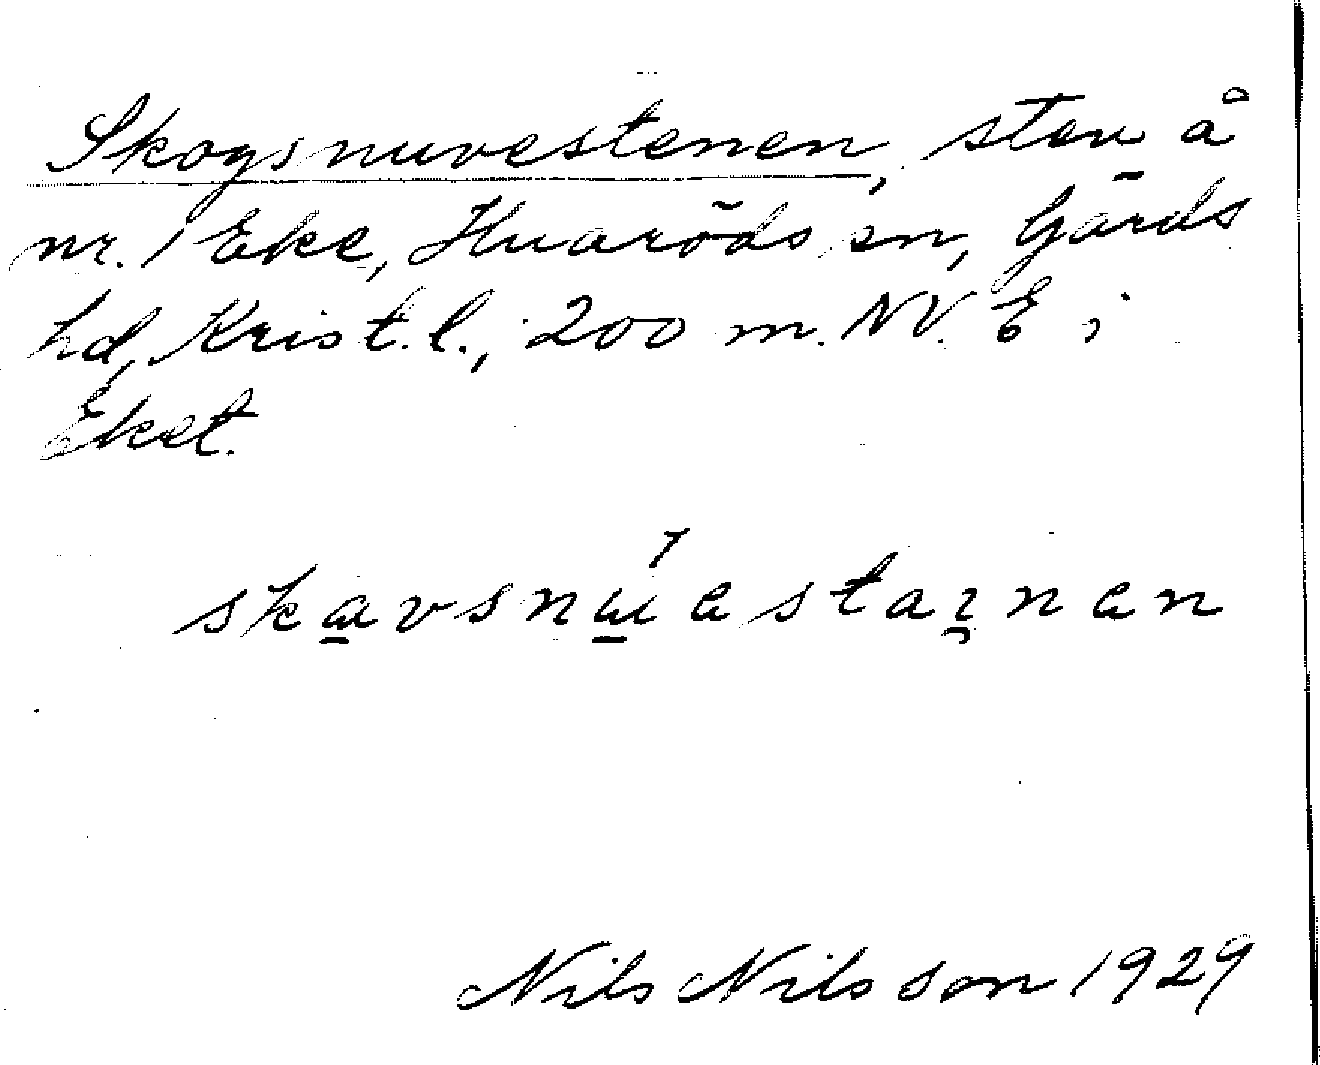 Skogsnuvestenen, sten å
nr. 1 Eke, Huaröds sn, Gärds
hd, Krist. l., 200 m. NV. E i
Eket.
skavsnúestaịnen
Nils Nilsson 1929